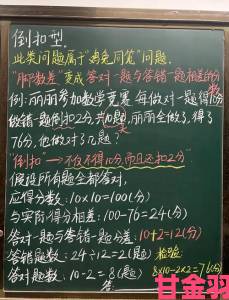 倒扣型:
此类问题属于"鸡兔同笼"问题.
"脚数差"变成答对一题与答错一题相差的分数
例:丽丽参加数学竞赛,每做对一题得10分
做错一题倒扣2分,共10题,丽丽全做了,得了
76分,他做对了几题?
"倒扣"→不仅不得10分,而且还扣2分"
假设所有题全都答对,
应得分数:10×10=100(分)
与实际得分相差:100-76=24(分)
答对一题与答错一题分差:10+2=12(分)
答错题数:24÷12=2(题) 检验
答对题数:10-2=8(题) 8×10-2×2=76(分)
答:
甘金羽